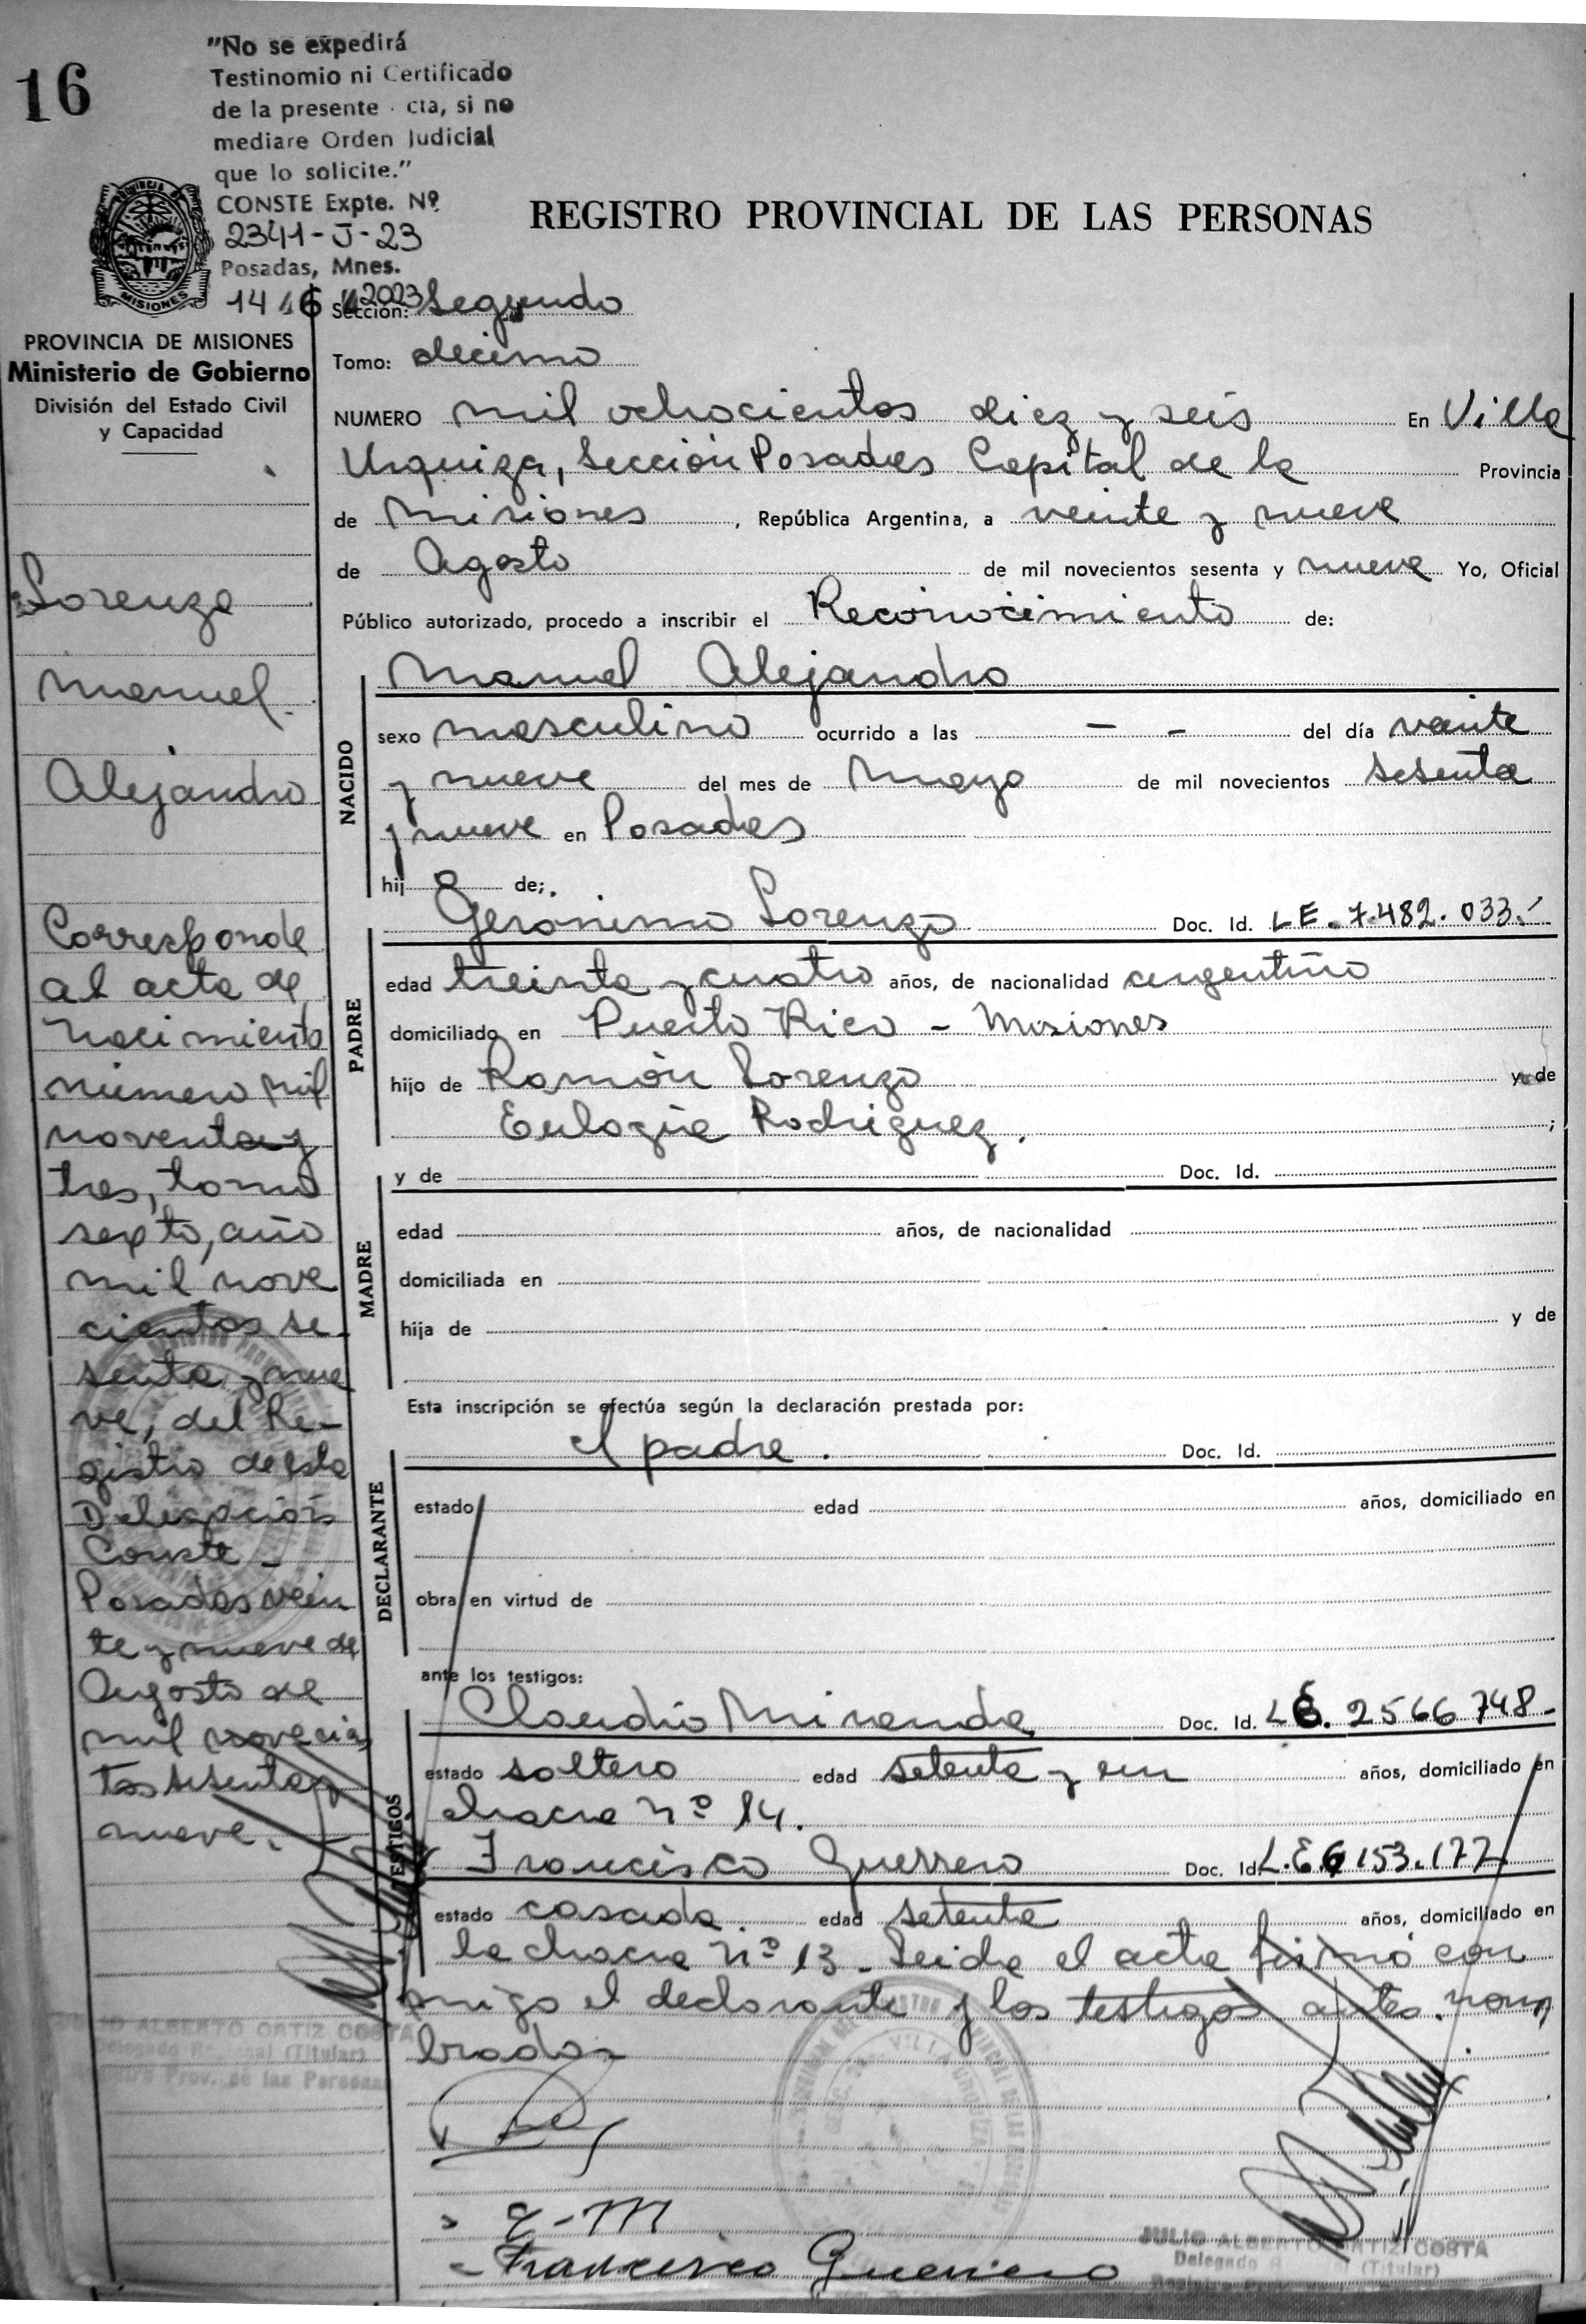 16
"No se expedirá
Testinomio ni Certificado
de la presente cta, si no
mediare Orden Judicial
que lo solicite."
CONSTE Expte. Nº
2341-J-23
Posadas, Mnes.
14 6 2023
PROVINCIA DE MISIONES
Ministerio de Gobierno
División del Estado Civil
y Capacidad
REGISTRO PROVINCIAL DE LAS PERSONAS
Sección: Segundo
Tomo: decimo
NUMERO mil ochocientos diez y seis En Villa
Urquiza, Sección Posadas Capital de la Provincia
de Misiones, República Argentina, a veinte y nueve
de Agosto de mil novecientos sesenta y nueve Yo, Oficial
Público autorizado, procedo a inscribir el Reconocimiento de:
Manuel Alejandro
NACIDO
sexo masculino ocurrido a las - - del día veinte
y nueve del mes de Mayo de mil novecientos sesenta
y nueve en Posadas
hijo de;.
Gerónimo Lorenzo Doc. Id. LE. 7.482.033.
PADRE
edad treinta y cuatro años, de nacionalidad argentino
domiciliado en Puerto Rico - Misiones
hijo de Ramón Lorenzo y de
Eulogia Rodriguez. ;
y de Doc. Id.
MADRE
edad años, de nacionalidad
domiciliada en
hija de y de
Esta inscripción se efectúa según la declaración prestada por:
el padre. Doc. Id.
DECLARANTE
estado edad años, domiciliado en
obra en virtud de
ante los testigos:
Claudio Miranda Doc. Id. LE. 2566748-
TESTIGOS
estado soltero edad setenta y un años, domiciliado en
chacra nº 14.
Francisco Guerrero Doc. Id. L.E 6 153.177
estado casado. edad setenta años, domiciliado en
la chacra nº 13 - Leida el acta firmó con
migo el declarante y los testigos antes nom
brados
Francisco Guerrero
JULIO ALBERTO ORTIZ COSTA
Delegado (Titular)
Lorenzo
Manuel
Alejandro
Corresponde
al acta de
nacimiento
número mil
noventa y
tres, tomo
sexto, año
mil nove
cientos se
senta y nue
ve, del Re-
gistro de esta
Delegación
Conste -
Posadas vein
te y nueve de
Agosto de
mil novecien
tos sesenta y
nueve.
JULIO ALBERTO ORTIZ COSTA
Delegado Regional (Titular)
Registro Prov. de las Personas